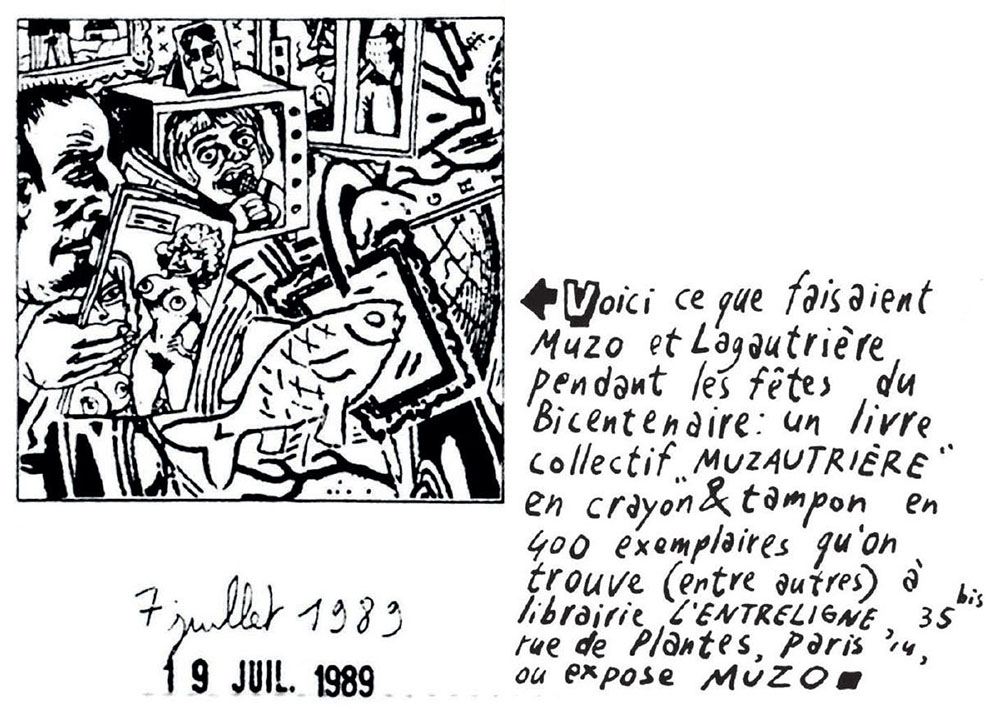 7 juillet 1989
19 JUIL. 1989
Voici ce que faisaient
Muzo et Lagautrière
pendant les fêtes du
Bicentenaire: un livre
collectif "MUZAUTRIÈRE"
en crayon & tampon en
400 exemplaires qu'on
trouve (entre autres) à
librairie L'ENTRELIGNE, 35 bis
rue de Plantes, Paris 14,
ou expose MUZO